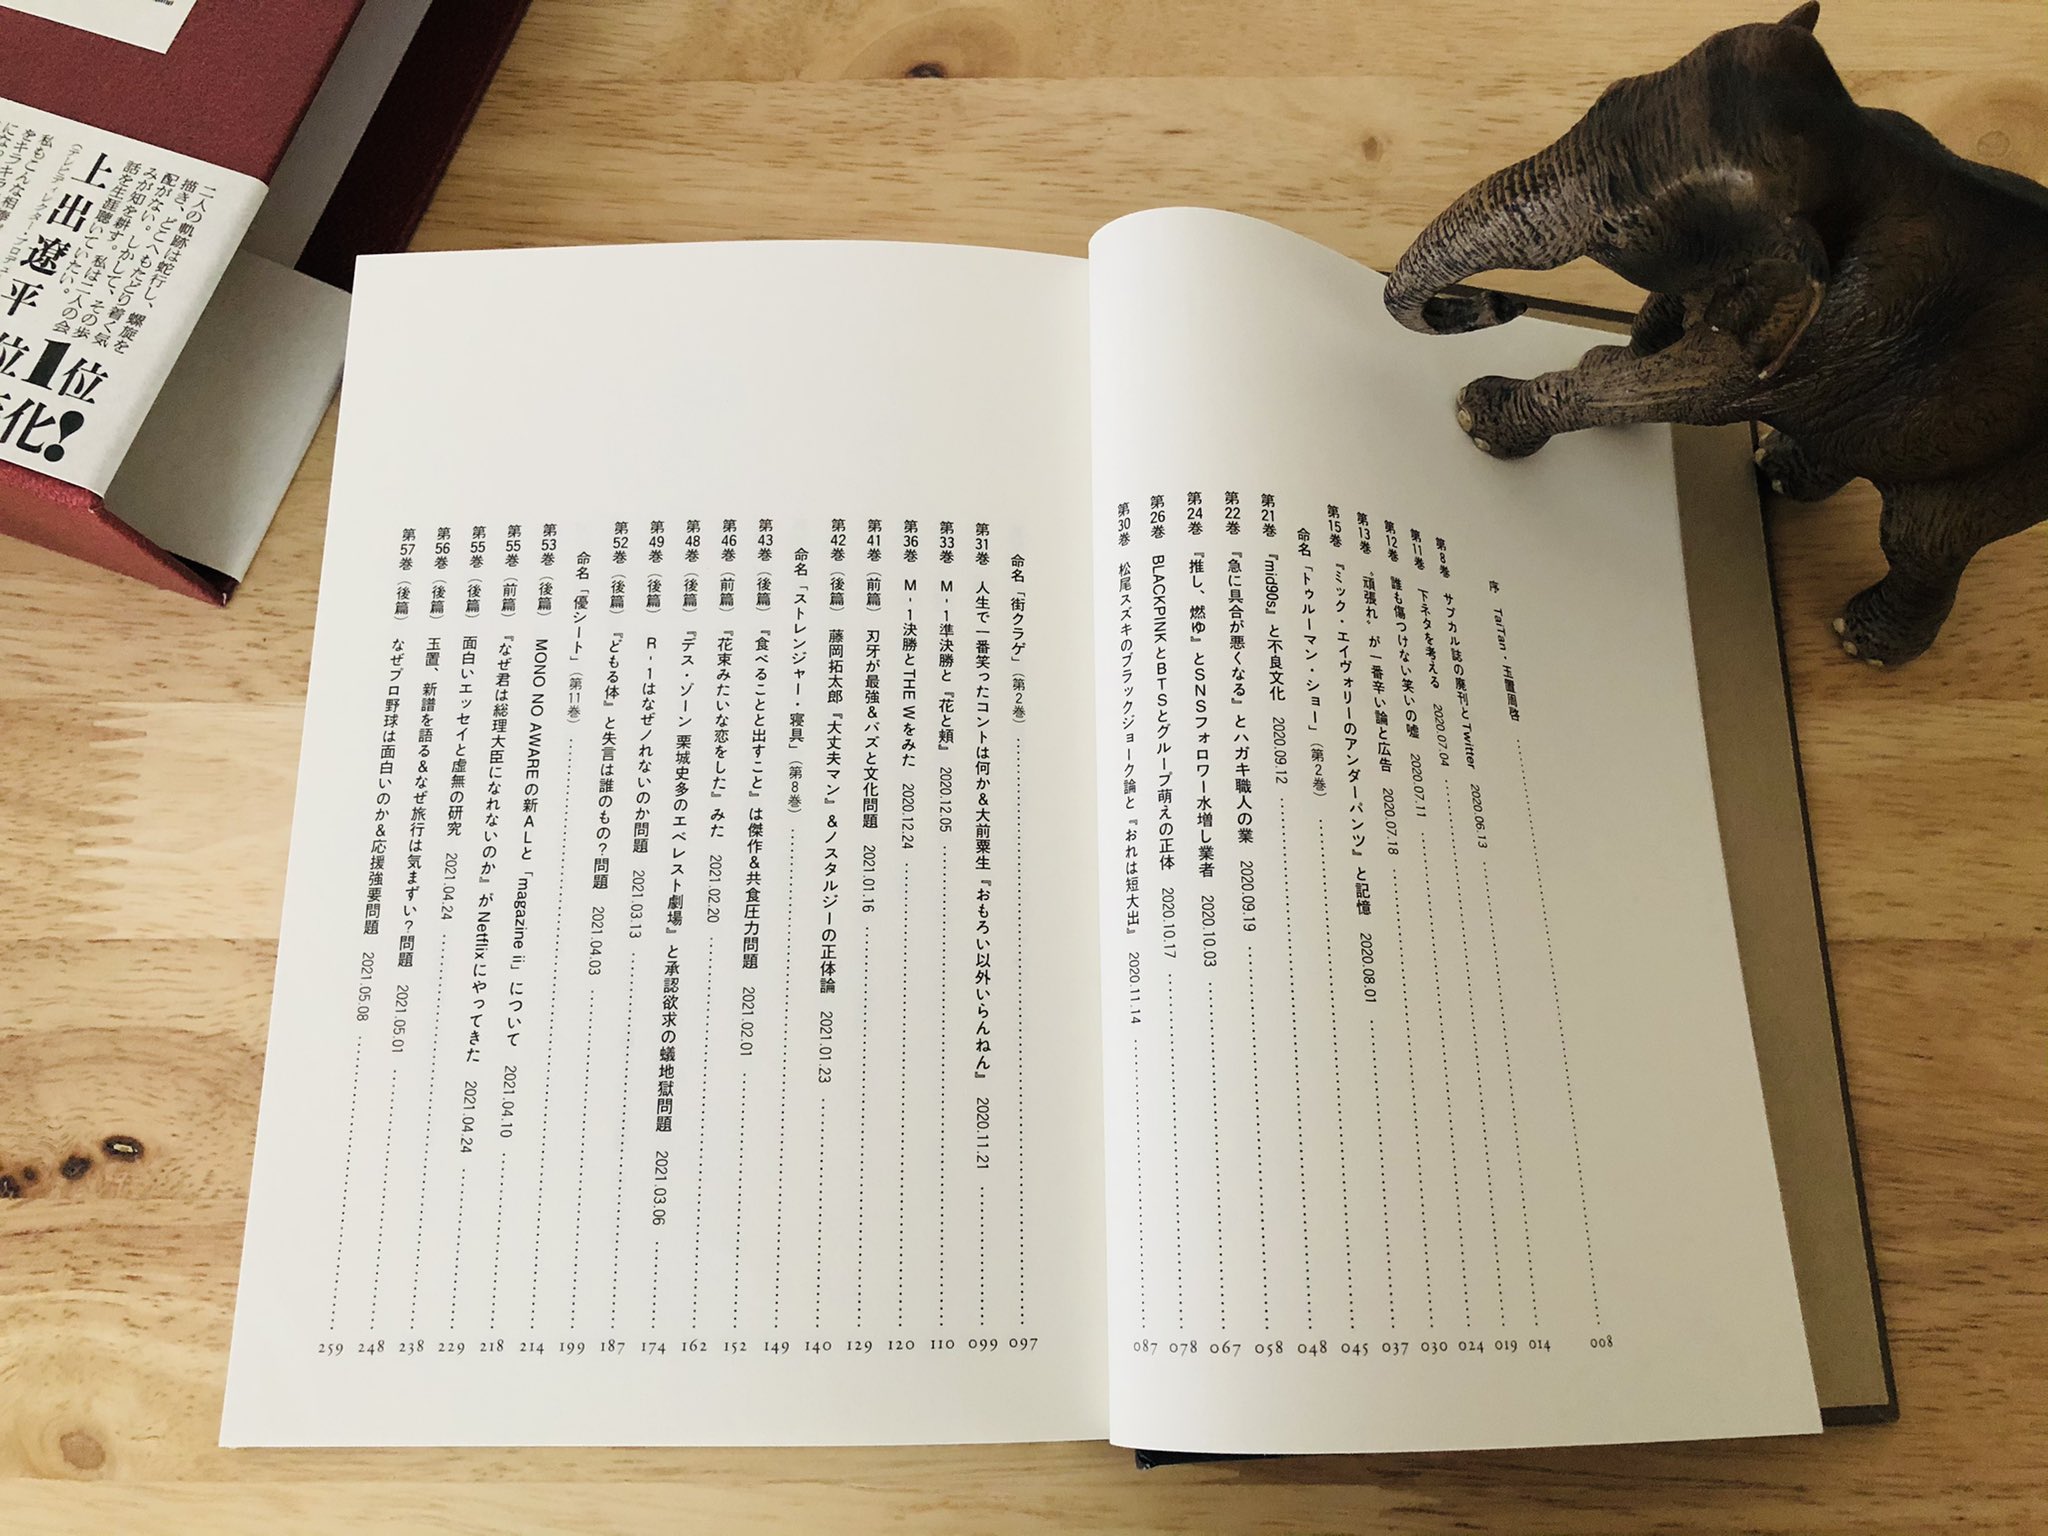 二人の軌跡は蛇行し、螺旋を
描き、どこへもたどり着く気
配がない。しかして、その歩
みが知を耕す。私は二人の会
話を生涯聴いていたい。
上出遼平
私もこんな相棒
位1位
化!
序 TaiTan・玉置周啓 008
第8巻 サブカル誌の廃刊とTwitter 2020.06.13 014
第11巻 下ネタを考える 2020.07.04 019
第12巻 誰も傷つけない笑いの嘘 2020.07.11 024
第13巻 “頑張れ”が一番辛い論と広告 2020.07.18 030
第15巻 『ミック・エイヴォリーのアンダーパンツ』と記憶 2020.08.01 037
命名「トゥルーマン・ショー」(第2巻) 045
第21巻 『mid90s』と不良文化 2020.09.12 048
第22巻 『急に具合が悪くなる』とハガキ職人の業 2020.09.19 058
第24巻 『推し、燃ゆ』とSNSフォロワー水増し業者 2020.10.03 067
第26巻 BLACKPINKとBTSとグループ萌えの正体 2020.10.17 078
第30巻 松尾スズキのブラックジョーク論と『おれは短大出』 2020.11.14 087
命名「街クラゲ」(第2巻) 097
第31巻 人生で一番笑ったコントは何か&大前粟生『おもろい以外いらんねん』 2020.11.21 099
第33巻 M-1準決勝と『花と頬』 2020.12.05 110
第36巻 M-1決勝とTHE Wをみた 2020.12.24 120
第41巻(前篇) 刃牙が最強&バズと文化問題 2021.01.16 129
第42巻(後篇) 藤岡拓太郎『大丈夫マン』&ノスタルジーの正体論 2021.01.23 140
命名「ストレンジャー・寝具」(第8巻) 149
第43巻(後篇) 『食べることと出すこと』は傑作&共食圧力問題 2021.02.01 152
第46巻(前篇) 『花束みたいな恋をした』みた 2021.02.20 162
第48巻(後篇) 『デス・ゾーン 栗城史多のエベレスト劇場』と承認欲求の蟻地獄問題 2021.03.06 174
第49巻(後篇) R-1はなぜノれないのか問題 2021.03.13 187
第52巻(後篇) 『どもる体』と失言は誰のもの?問題 2021.04.03 199
命名「優シート」(第11巻) 214
第53巻(後篇) MONO NO AWAREの新ALと「magazine ii」について 2021.04.10 218
第55巻(前篇) 『なぜ君は総理大臣になれないのか』がNetflixにやってきた 2021.04.24 229
第55巻(後篇) 面白いエッセイと虚無の研究 2021.04.24 238
第56巻(後篇) 玉置、新譜を語る&なぜ旅行は気まずい?問題 2021.05.01 248
第57巻(後篇) なぜプロ野球は面白いのか&応援強要問題 2021.05.08 259